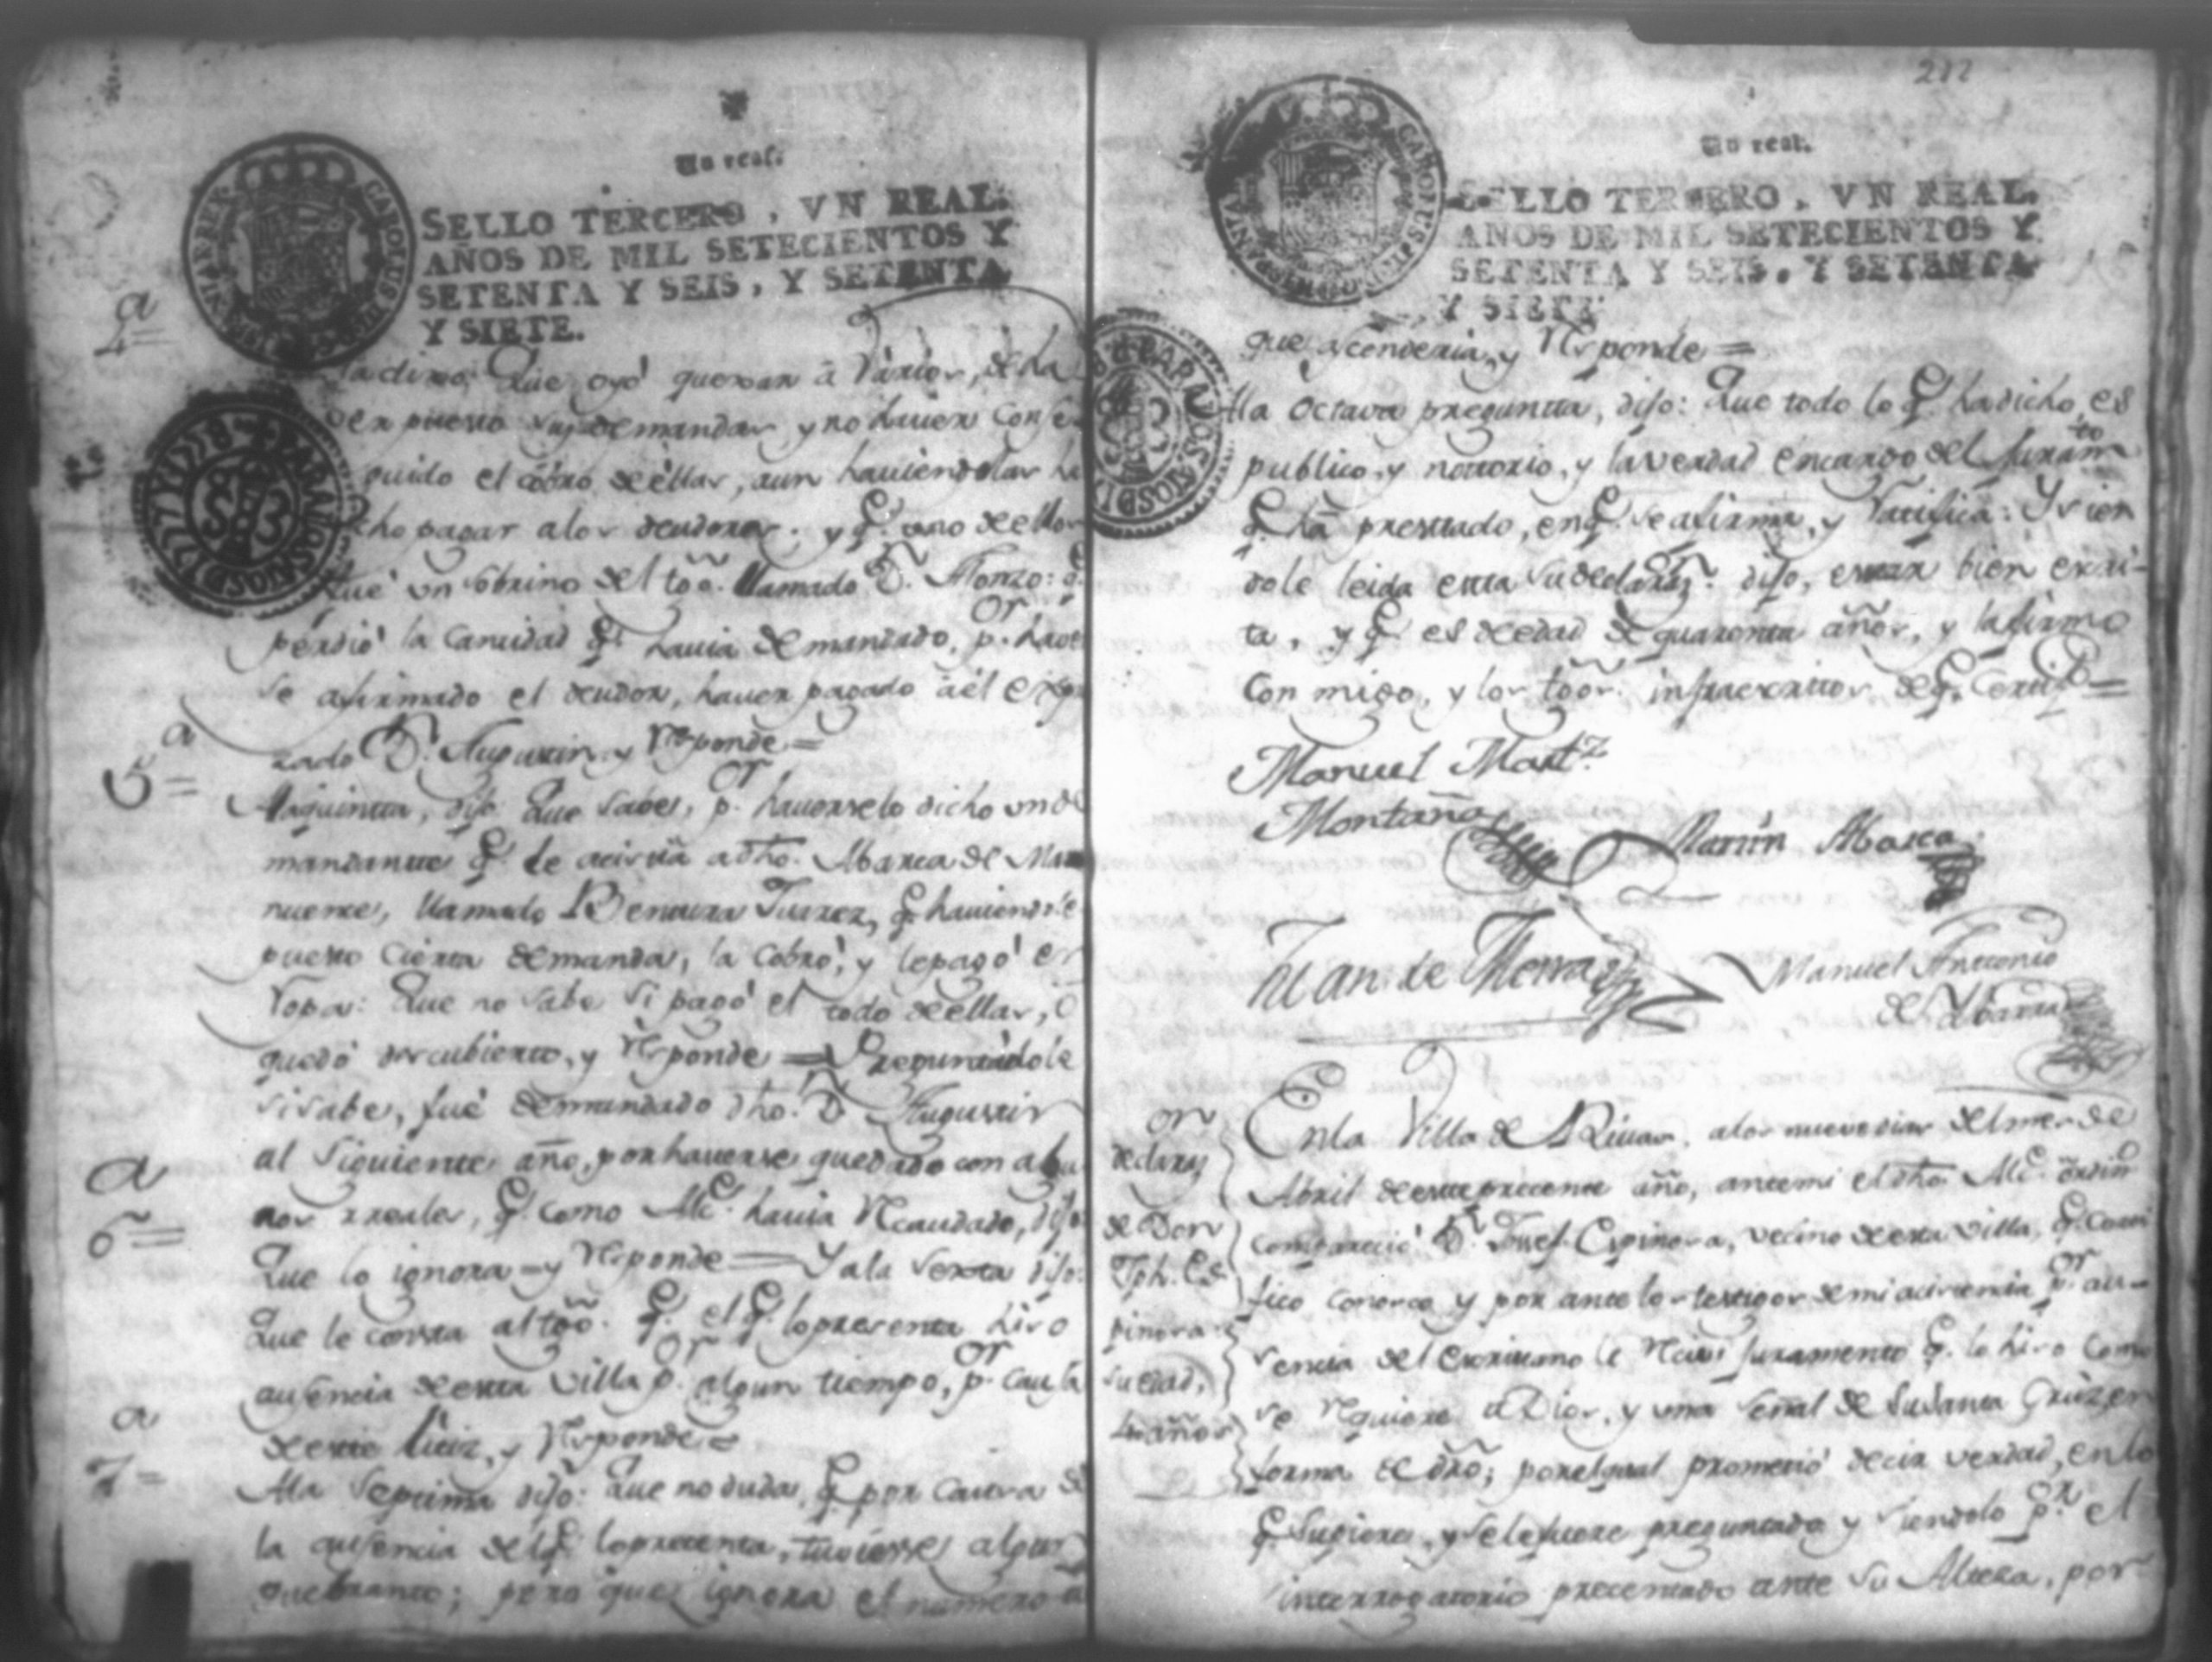 Un real.
SELLO TERCERO, VN REAL.
AÑOS DE MIL SETECIENTOS Y
SETENTA Y SEIS, Y SETENTA
Y SIETE.
4a=
ta dixo: Que oyó quexar à varios, de ha
ver puesto sus demandas, y no haver conse
guido el cobro de ellas, aun haviendolas he
cho pagar a los deudores; y q.e uno de ellos
fue un sobrino del tgõ. llamado D.n Alonzo: q.e
perdió la cantidad q.e havia demandado, p.or haver
se afirmado el deudor, haver pagado à él
zado D.n Augustin y Responde=
5a=
Ala quinta, dijo: Que save, p.or haverselo dicho un de
mandante q.e le acistia a dho. Abarca de
nuense, llamado Bentura Juarez, q.e haviendole
puesto cierta demanda, la cobró, y le pagó en
Ropa: Que no sabe si pagó el todo de ellas, ó
quedó descubierto, y Responde= Preguntadole
si sabe, fué demandado dho. D.n Augustin
al siguiente año, por haverse quedado con algu
nos rreales, q.e como Alc.e havia Recaudado, dijo:
6a=
Que lo ignora y Responde= Y ala sexta dijo:
Que le consta al tgõ. q.e el q.e lo presenta hizo
ausencia de esta Villa p.or algun tiempo, p.or causa
de este Juiz, y Responde=
7a=
Ala septima dijo: Que no duda, q.e por causa de
la ausencia del q.e lo precenta, tuviesse algun
quebranto; pero que ignora el numero a
212
Un real.
SELLO TERCERO, VN REAL.
AÑOS DE MIL SETECIENTOS Y
SETENTA Y SEIS, Y SETENTA
Y SIETE
que ascenderia, y Responde=
Ala Octava pregunta, dijo: Que todo lo q.e ha dicho, es
publico, y notorio, y la verdad encargo del Juram.to
q.e ha prestado, en q.e se afirma, y Ratifica: Y sien
dole leida esta su declaraz.n dijo, estar bien escri-
ta, y q.e es de edad de quarenta años, y la firmo
con migo, y los tgõs. infraescritos de q.e Certifico=
Manuel Mart.z
Montaño
Martin Abarca
Juan de
Manuel Antonio
de
declaraz.on
de Don
Jph. Es
pinosa:
su edad,
años
En la Villa de Rivas, a los nueve dias del mes de
Abril de este precente año, ante mi el dho. Alc.e ordin.o
compareció D.n Josef Espinosa, vecino de esta Villa, q.e Certi
fico conosco y por ante los testigos de mi acistencia p.or au-
sencia del escrivano le Recivi Juramento q.e lo hizo como
se Requiere a Dios, y una señal de su Santa Cruz, en
forma de dro; por el qual prometió decir verdad, en lo
q.e supiere, y se le fuere preguntado y siendolo p.r el
interrogatorio precentado ante su Alteza, por